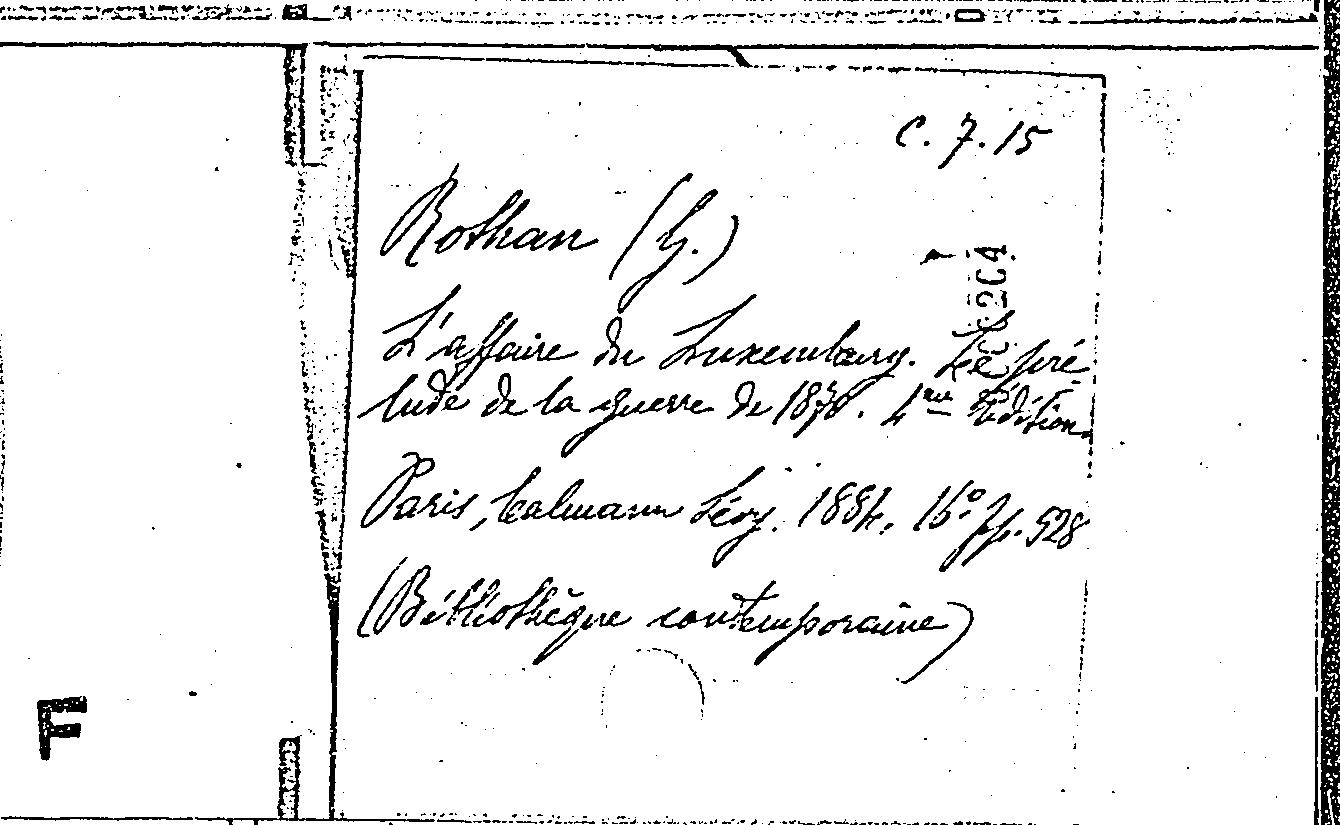 C. 7. 15
Rothan (G.)
204
L'affaire du Luxembourg. Le pré
lude de la guerre de 1870. 4me Édition.
Paris, Calmann Lévy. 1884. 16° pp. 528
(Bibliothèque contemporaine)
F